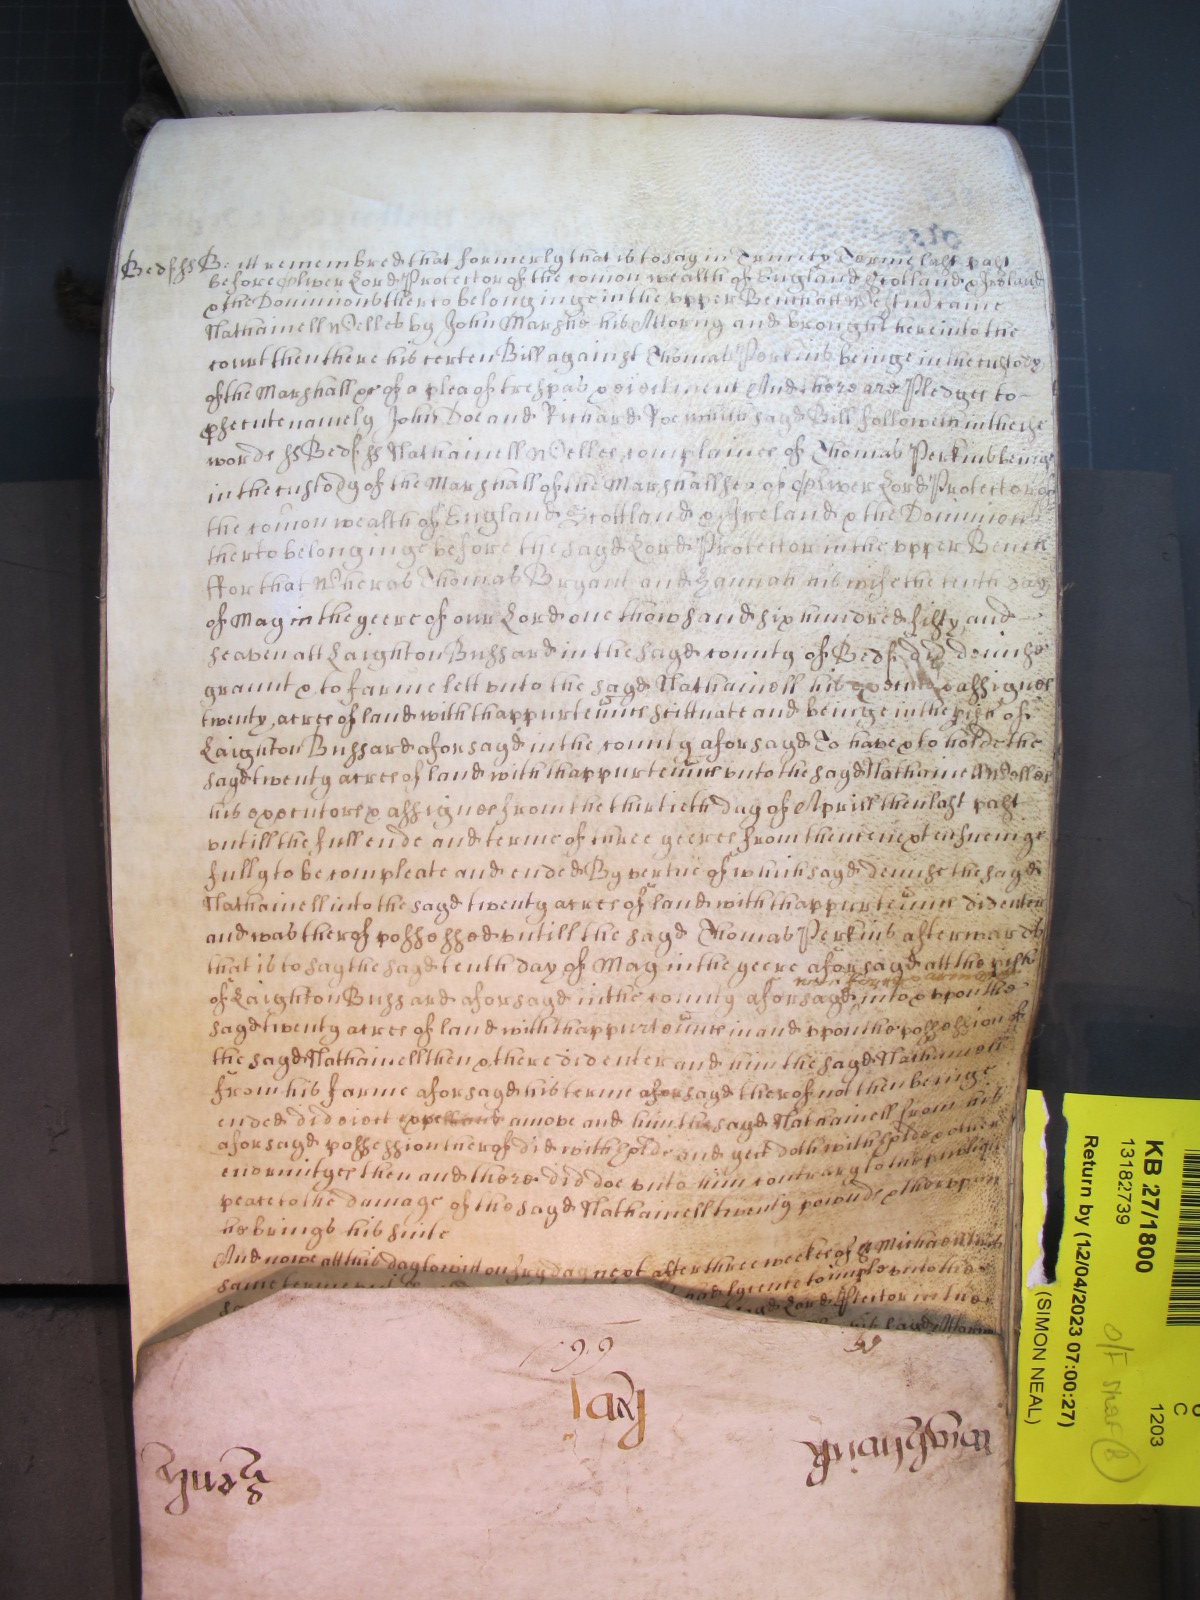 Bedf ss Be itt remembred that formerly that is to say in Trinity Terme last past
before Oliver Lord Protector of the comon wealth of England Scotland & Ireland
& the Dominions therto belonginge in the upper Bench att Westm came
Nathaniell Welles by John Marshe his Attorny and brought here into the
court then there his certen Bill against Thomas Perkins beinge in the custody
of the Marshall &c of a plea of trespas & eiectment And there are Pledges to
psecute namely John Doe and Richard Roe which sayd Bill followeth in these
words ss Bedf ss Nathaniell Welles complaines of Thomas Perkins beinge
in the custody of the Marshall of the Marshallsea of Oliver Lord Protector of
the comon wealth of England Scottland & Ireland & the Dominions
therto belonginge before the sayd Lord Protector in the upper Bench
ffor that Wheras Thomas Bryant and Hannah his wife the tenth day
of May in the yeere of our Lord one thowsand six hundred fifty and
seaven att Laighton Bussard in the sayd county of Bedf did demise
graunt & to farme lett unto the sayd Nathaniell his & assignes
twenty acres of land with thappurtennce scittuate and beinge in the pish of
Laighton Bussard aforsayd in the county aforsayd To have & to hold the
sayd twenty acres of land with thappurtennce unto the sayd Nathaniell Welles
his executors & assignes from the thirtieth day of Aprill then last past
untill the full ende and terme of three yeeres from thence next ensueinge
fully to be compleate and ended By vertue of which sayd demise the sayd
Nathaniell into the sayd twenty acres of land with thappurtennce did enter
and was therof possessed untill the sayd Thomas Perkins afterwards
that is to say the sayd tenth day of May in the yeere aforsayd att the pish
of Laighton Bussard aforsayd in the county aforsayd with force & armes into & uppon the
sayd twenty acres of land with thappurtennce in and uppon the possession of
the sayd Nathaniell then & there did enter and him the sayd Nathaniell
from his farme aforsayd his terme aforsayd therof not then beinge
ended did eiect expell and amove and him the sayd Nathaniell from his
aforsayd possession therof did withhold and yett doth withhold & other
enormityes then and there did doe unto him contrary to the publique
peace to the damage of the sayd Nathaniell twenty pounds & theruppon
he brings his suite
And nowe att this day to witt on fryday next after three weekes of St Michaell in this
same terme untill lycence to imple unto the
sayd Lord Ptector in the
his sayd Attorny
KB 27/1800
13182739
Return by (12/04/2023 07:00:27)
(SIMON NEAL)
C
1203